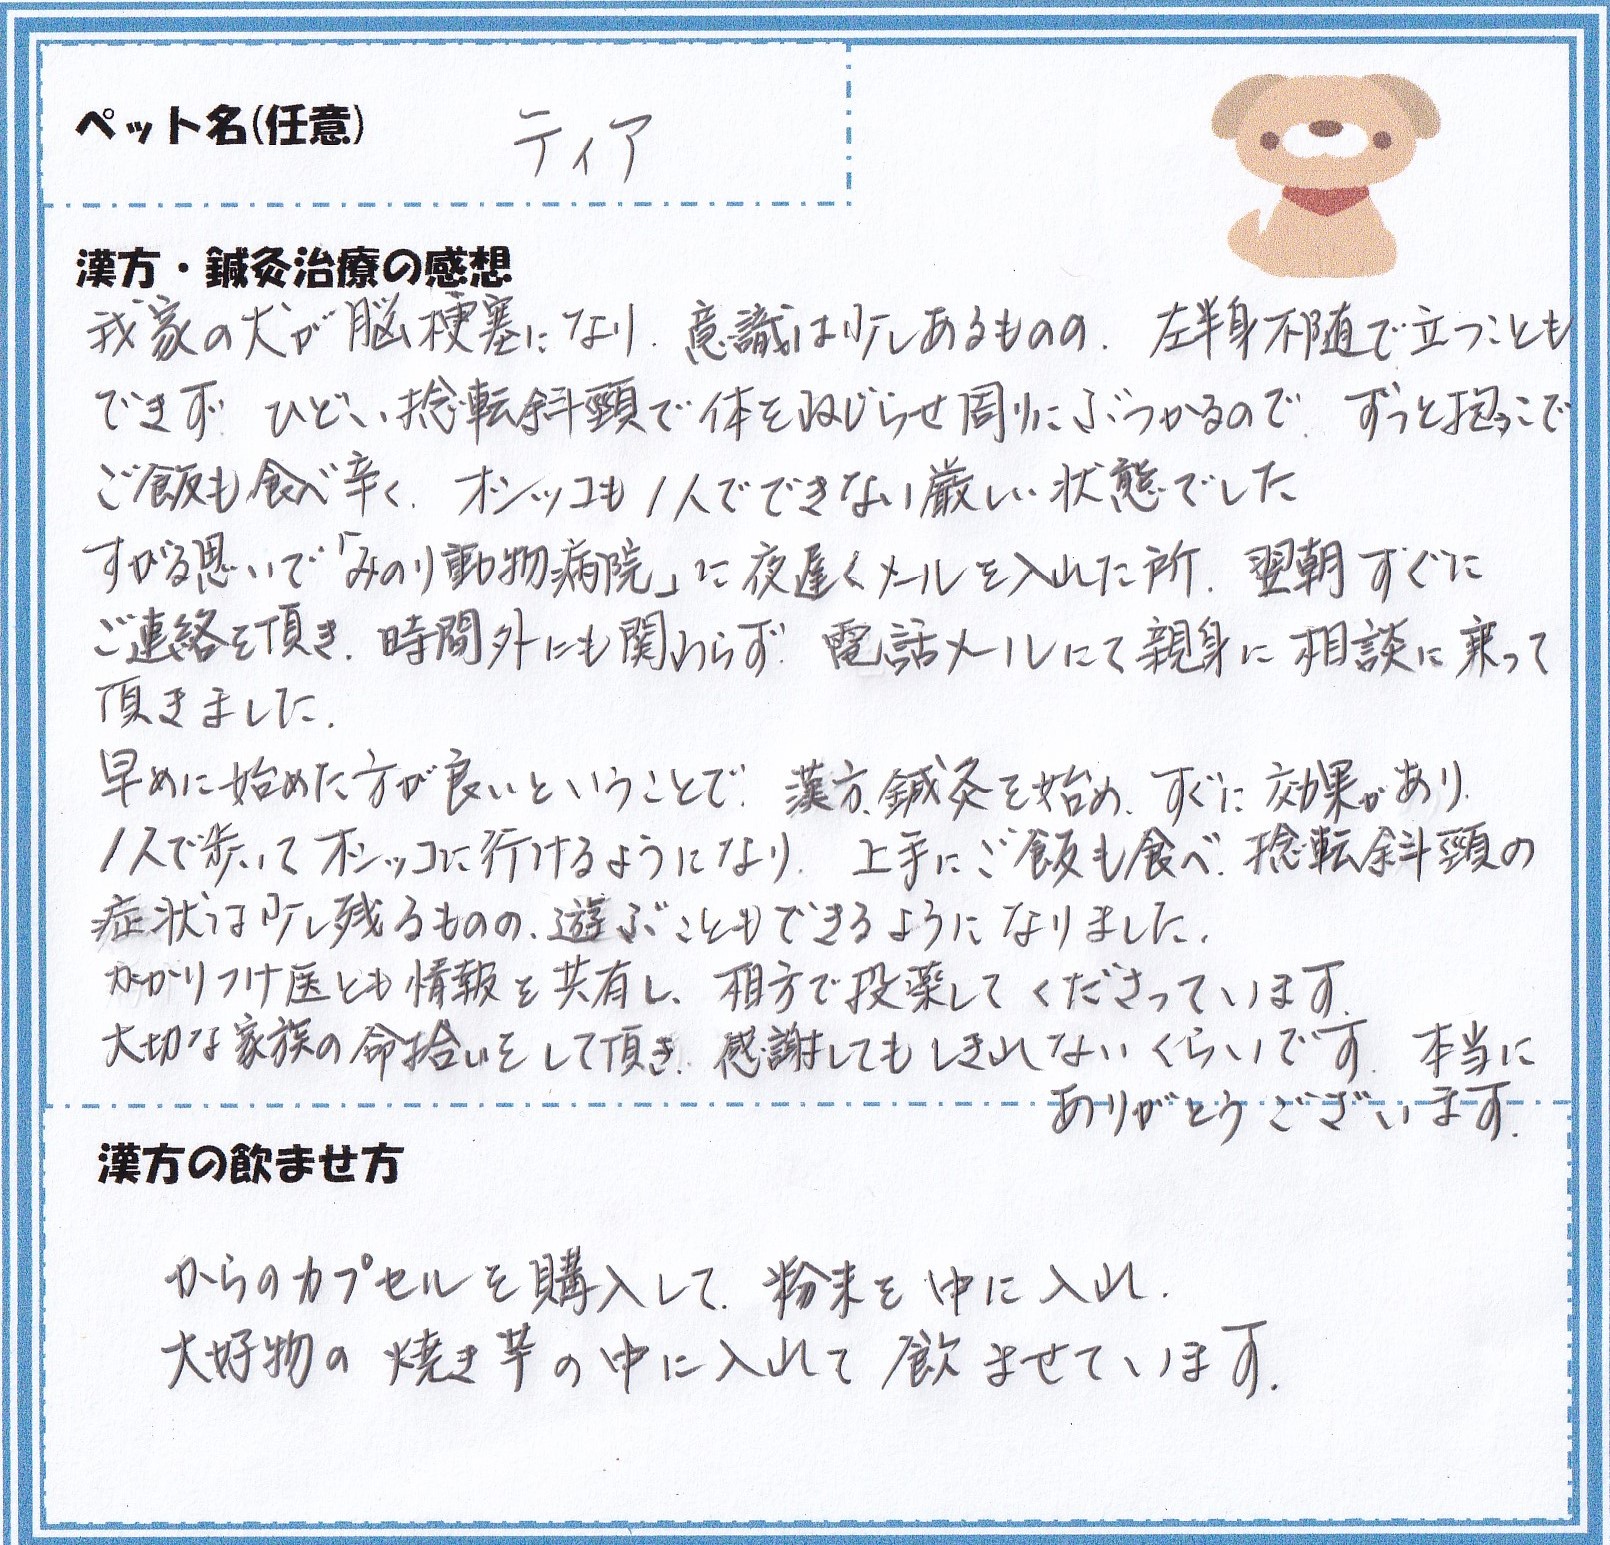 ペット名(任意) ティア
漢方・鍼灸治療の感想
我家の犬が脳梗塞になり、意識は少しあるものの、左半身不随で立つことも
できず、ひどい捻転斜頸で体をねじらせ周りにぶつかるので、ずっと抱っこで
ご飯も食べ辛く、オシッコも1人でできない厳しい状態でした
すがる思いで「みのり動物病院」に夜遅くメールを入れた所、翌朝すぐに
ご連絡を頂き、時間外にも関わらず、電話メールにて親身に相談に乗って
頂きました。
早めに始めた方が良いということで、漢方、鍼灸を始め、すぐに効果があり、
1人で歩いてオシッコに行けるようになり、上手にご飯も食べ、捻転斜頸の
症状は少し残るものの、遊ぶこともできるようになりました。
かかりつけ医とも情報を共有し、相方で投薬してくださっています。
大切な家族の命拾いをして頂き、感謝してもしきれないくらいです。本当に
ありがとうございます。
漢方の飲ませ方
からのカプセルを購入して、粉末を中に入れ、
大好物の焼き芋の中に入れて飲ませています。